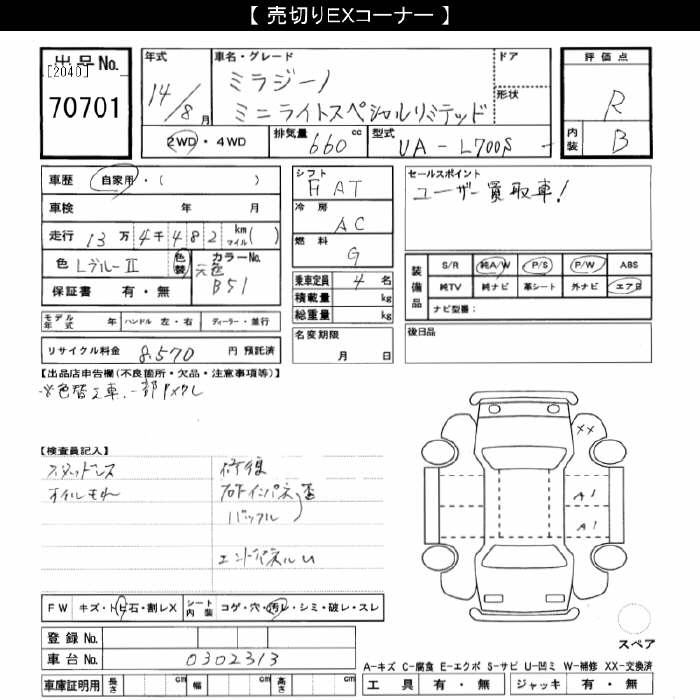 【 売切りEXコーナー 】
出品No.
[2040]
70701
年式
14/8月
車名・グレード
ミラジーノ
ミニライトスペシャルリミテッド
ドア
形状
評価点
R
内装 B
2WD・4WD
排気量 660 cc
型式 UA-L700S
車歴 自家用・( )
車検 年 月
走行 13万4千482 km マイル( )
色 Lブルー II 色替 元色
カラーNo. B51
保証書 有・無
モデル年式 年 ハンドル 左・右 ディーラー・並行
リサイクル料金 8,570 円 預託済
シフト
FAT
冷房
AC
燃料
G
乗車定員 4名
積載量 kg
総重量 kg
名変期限
月 日
セールスポイント
ユーザー買取車!
装備品
S/R 純A/W P/S P/W ABS
純TV 純ナビ 革シート 外ナビ エアB
ナビ型番:
後日品
【出品店申告欄(不良箇所・欠品・注意事項等)】
※色替え車、一部
【検査員記入】
スタッドレス
オイルもれ
修復
インパネ
バックル
エンドパネルU
XX
A1
A1
FW キズ・トビ石・割レX シート内装 コゲ・穴・汚レ・シミ・破レ・スレ
登録No.
車台No. 0302313
車庫証明用 長さ cm 幅 cm 高さ cm
スペア
A-キズ C-腐食 E-エクボ S-サビ U-凹ミ W-補修 XX-交換済
工具 有・無 ジャッキ 有・無